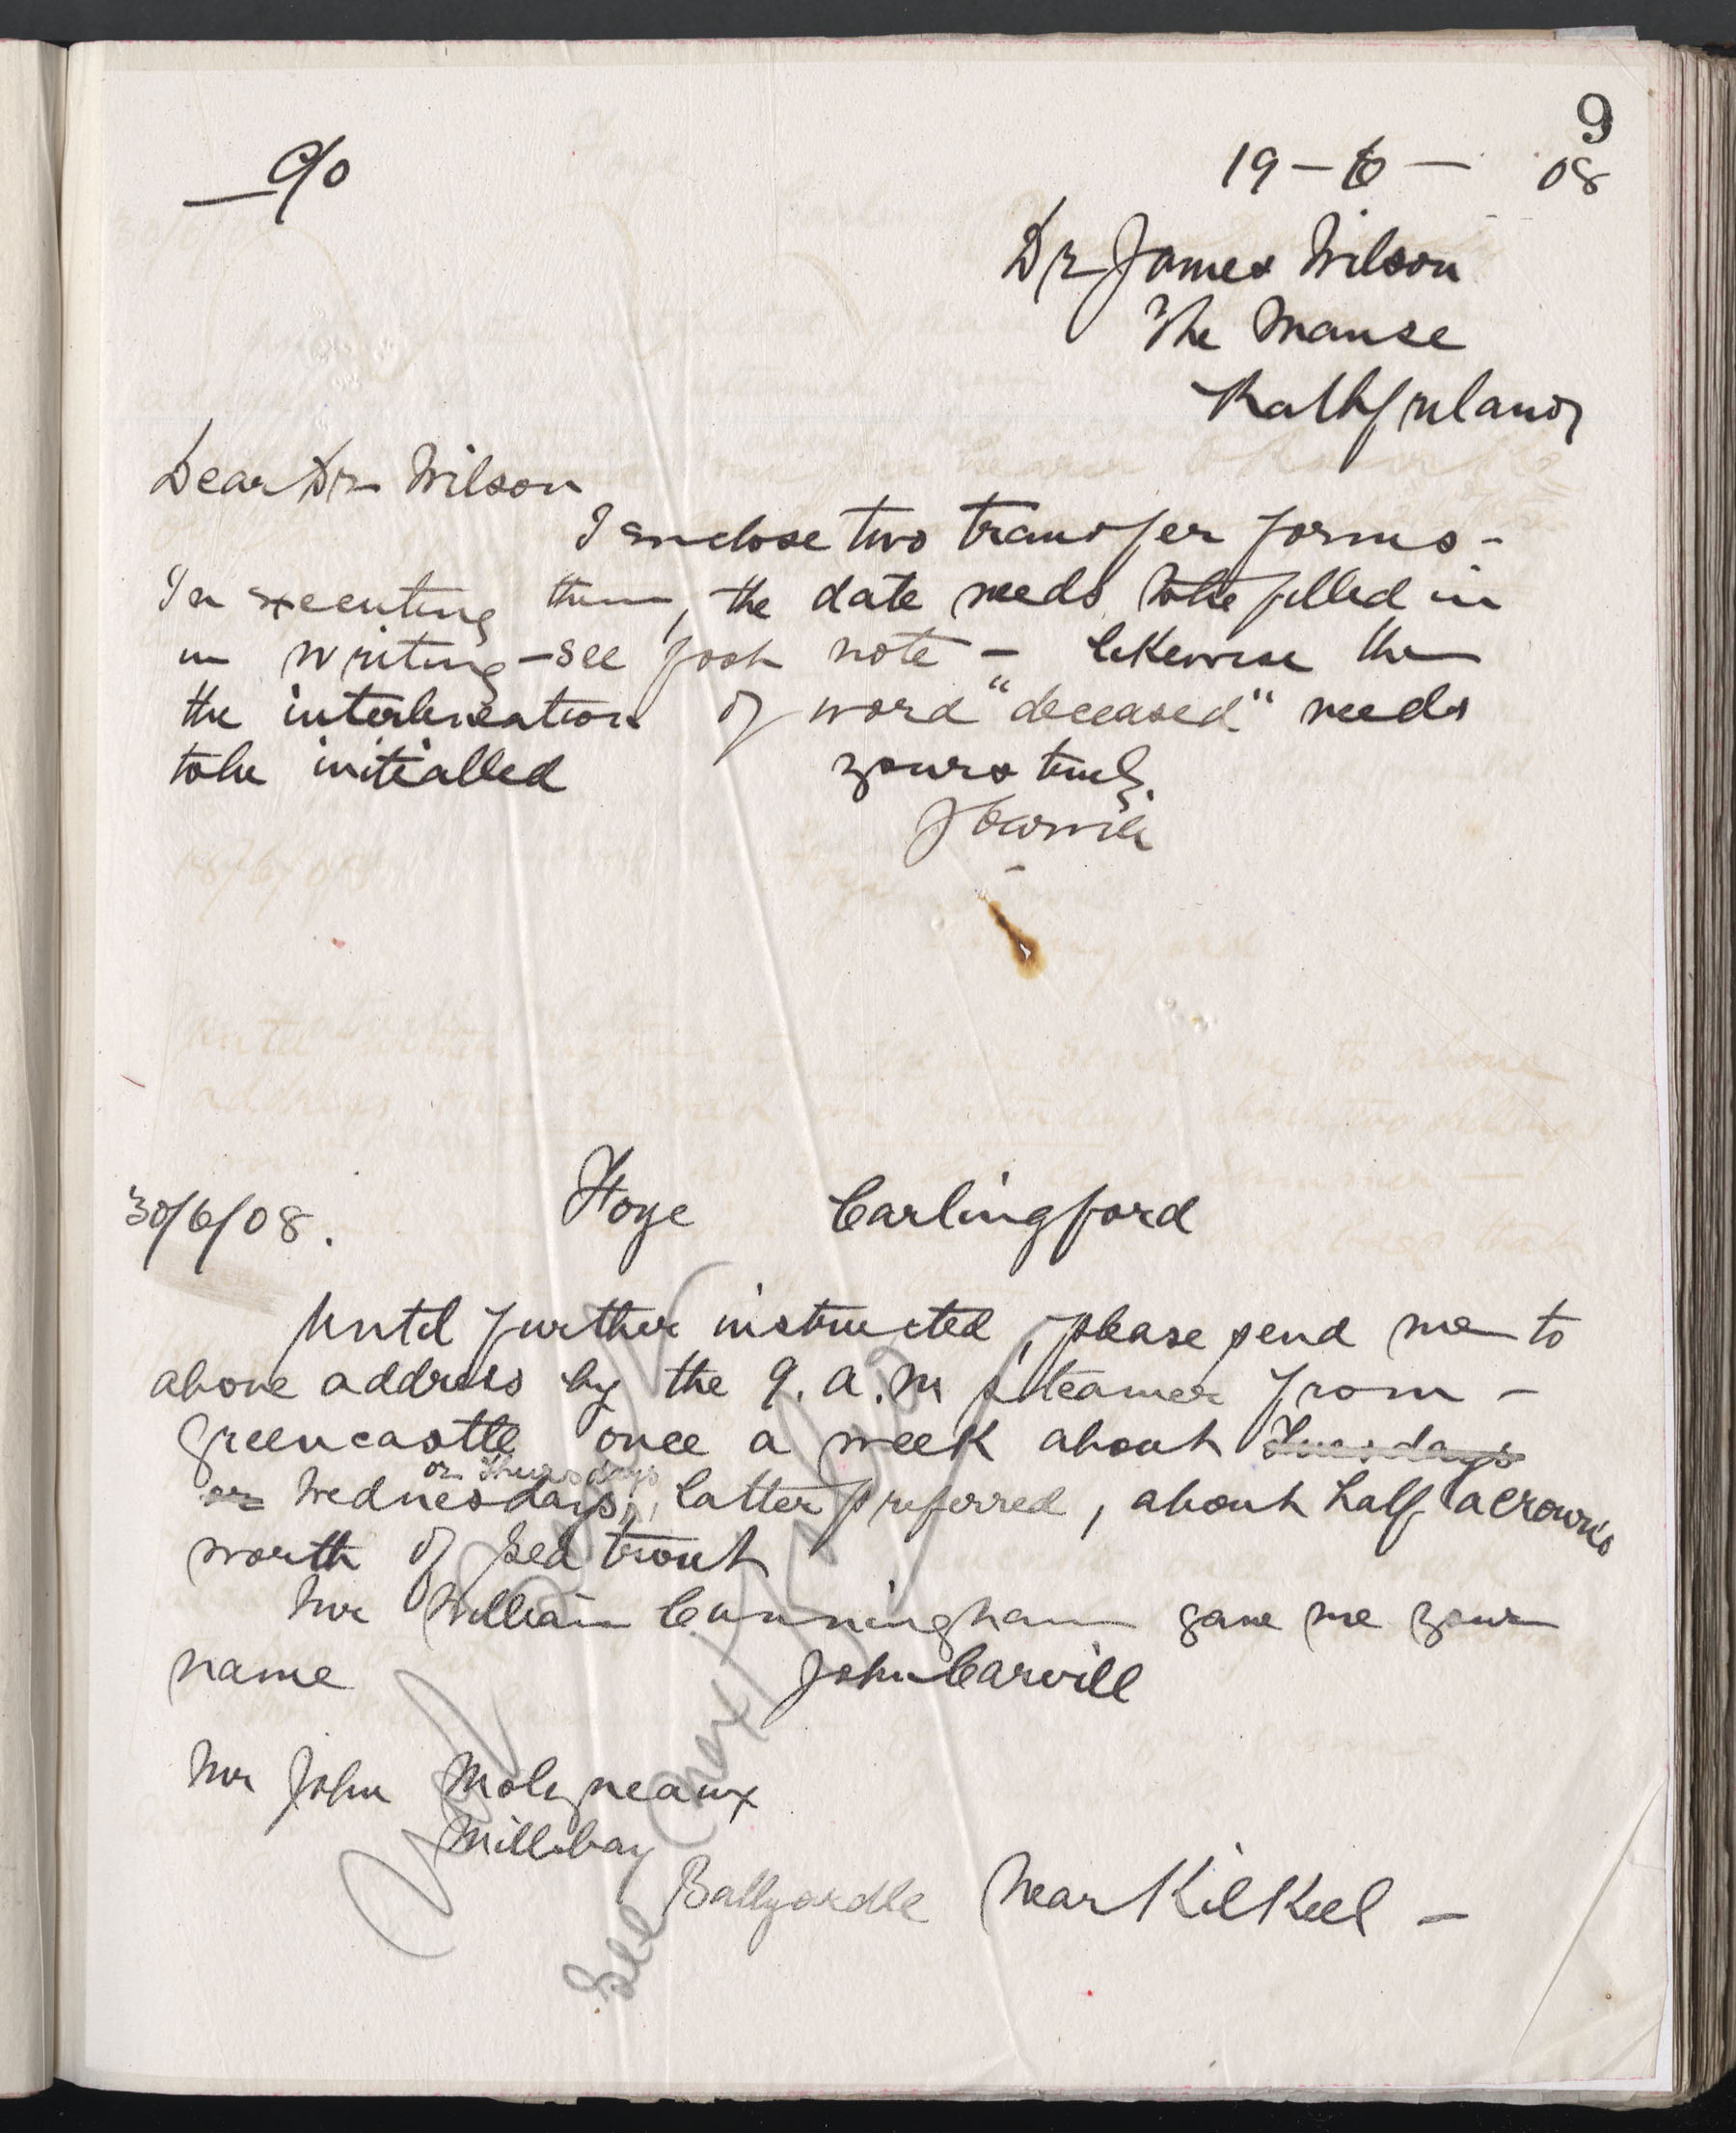 9
c/o 19 - 6 - 08
Dr James Wilson
The Manse
Rathfriland
Dear Dr Wilson
I enclose two transfer forms -
In executing them, the date needs to be filled in
in writing - see foot note - likewise the
the interlineation of word "deceased" needs
to be initialled yours truly
JCarvill
30/6/08. Foye Carlingford
Until further instructed, please send me to
above address by the 9. a.m steamer from -
Greencastle once a week about Tuesdays
or Wednesdays, or Thursdays latter preferred, about half a crown's
worth of sea trout
Mr William Cunningham gave me your
name John Carvill
Mr John Molyneaux
Millbay
Ballyardle Near Kilkeel -
See next page